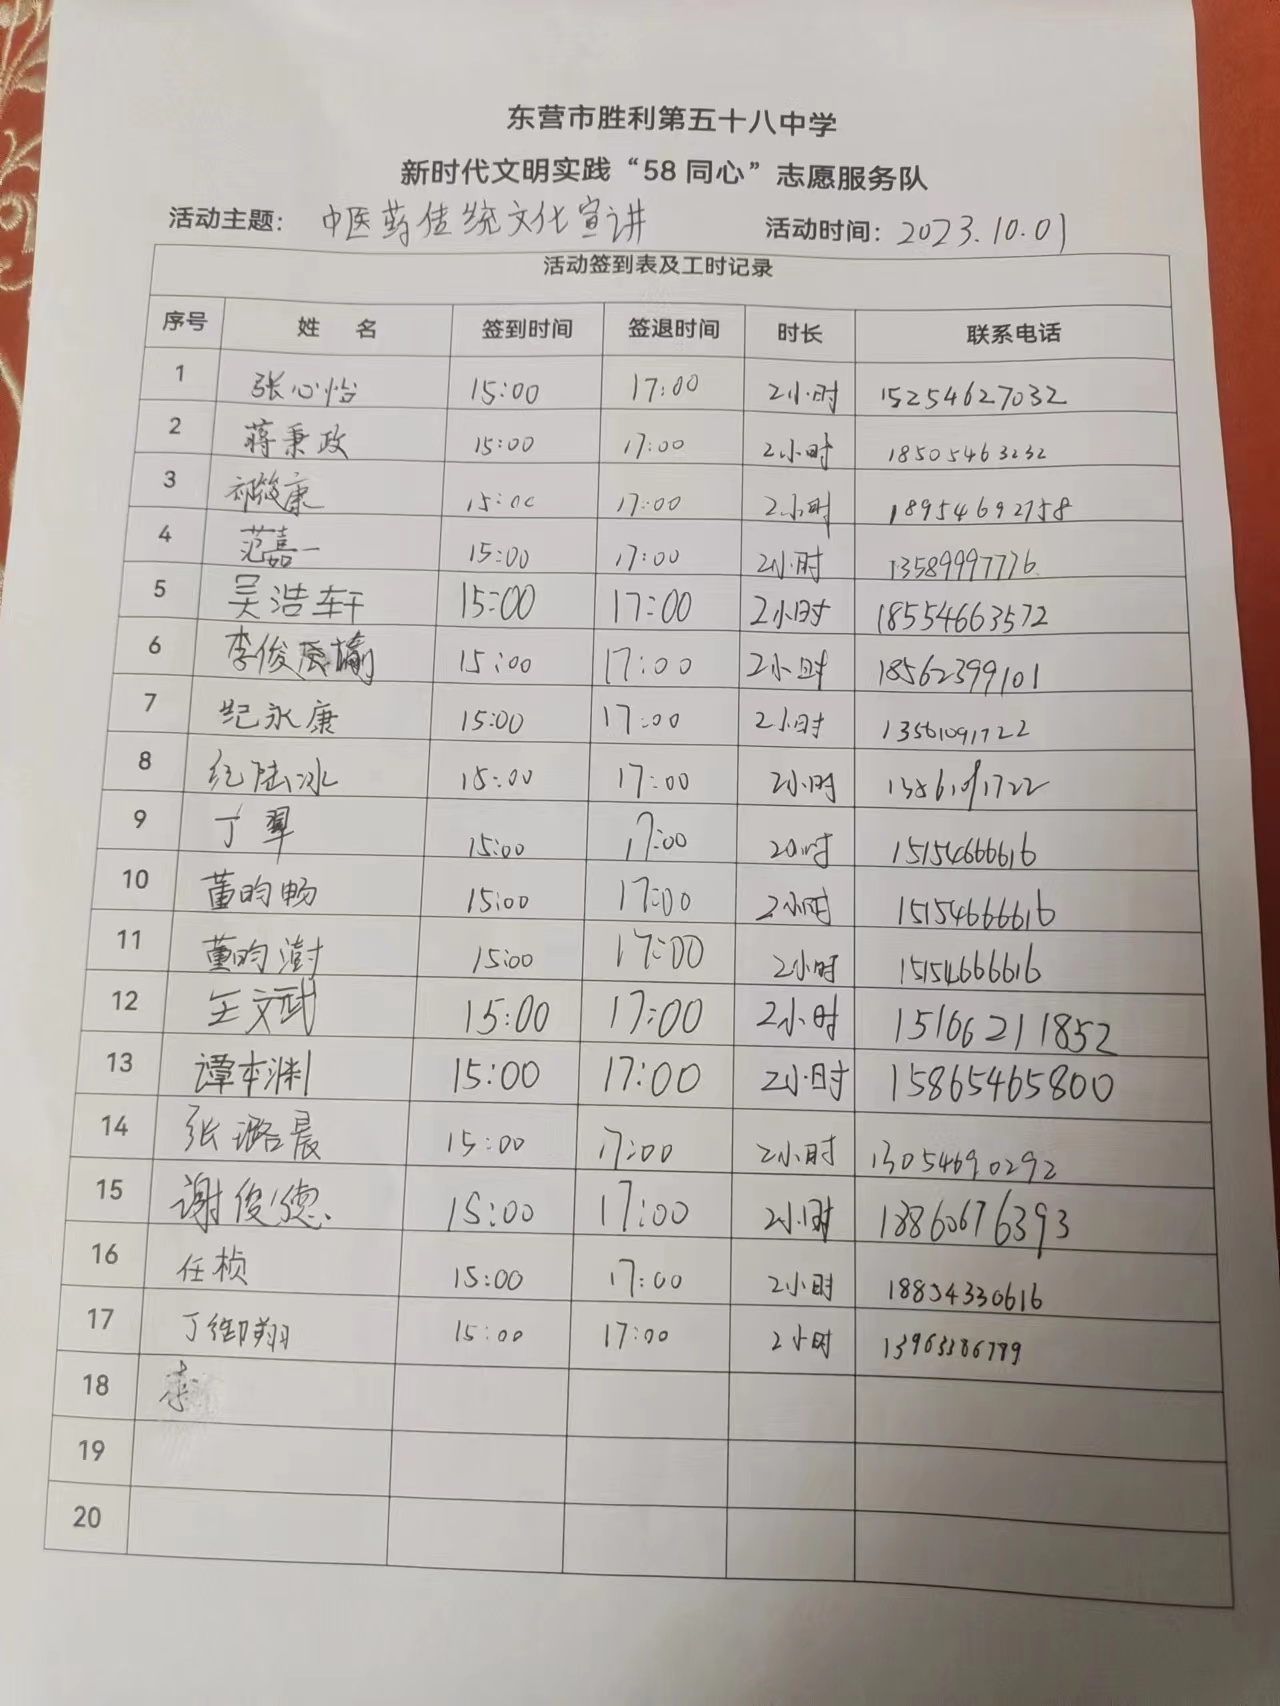 东营市胜利第五十八中学
新时代文明实践“58 同心”志愿服务队
活动主题: 中医药传统文化宣讲 活动时间: 2023.10.01
活动签到表及工时记录
序号 姓 名 签到时间 签退时间 时长 联系电话
1 张心怡 15:00 17:00 2小时 15254627032
2 蒋秉政 15:00 17:00 2小时 18505463232
3 祁俊康 15:00 17:00 2小时 18954692758
4 范嘉一 15:00 17:00 2小时 13589997776
5 吴浩轩 15:00 17:00 2小时 18554663572
6 李俊 15:00 17:00 2小时 18562399101
7 纪永康 15:00 17:00 2小时 13561091722
8 纪陆冰 15:00 17:00 2小时 13561091722
9 丁翠 15:00 17:00 2小时 15154666616
10 董昀畅 15:00 17:00 2小时 15154666616
11 董昀澍 15:00 17:00 2小时 15154666616
12 王文武 15:00 17:00 2小时 15166211852
13 谭本渊 15:00 17:00 2小时 15865465800
14 张璐晨 15:00 17:00 2小时 13054690292
15 谢俊德 15:00 17:00 2小时 18860676393
16 任桢 15:00 17:00 2小时 18834330616
17 丁御翔 15:00 17:00 2小时 13963386789
18 李
19
20